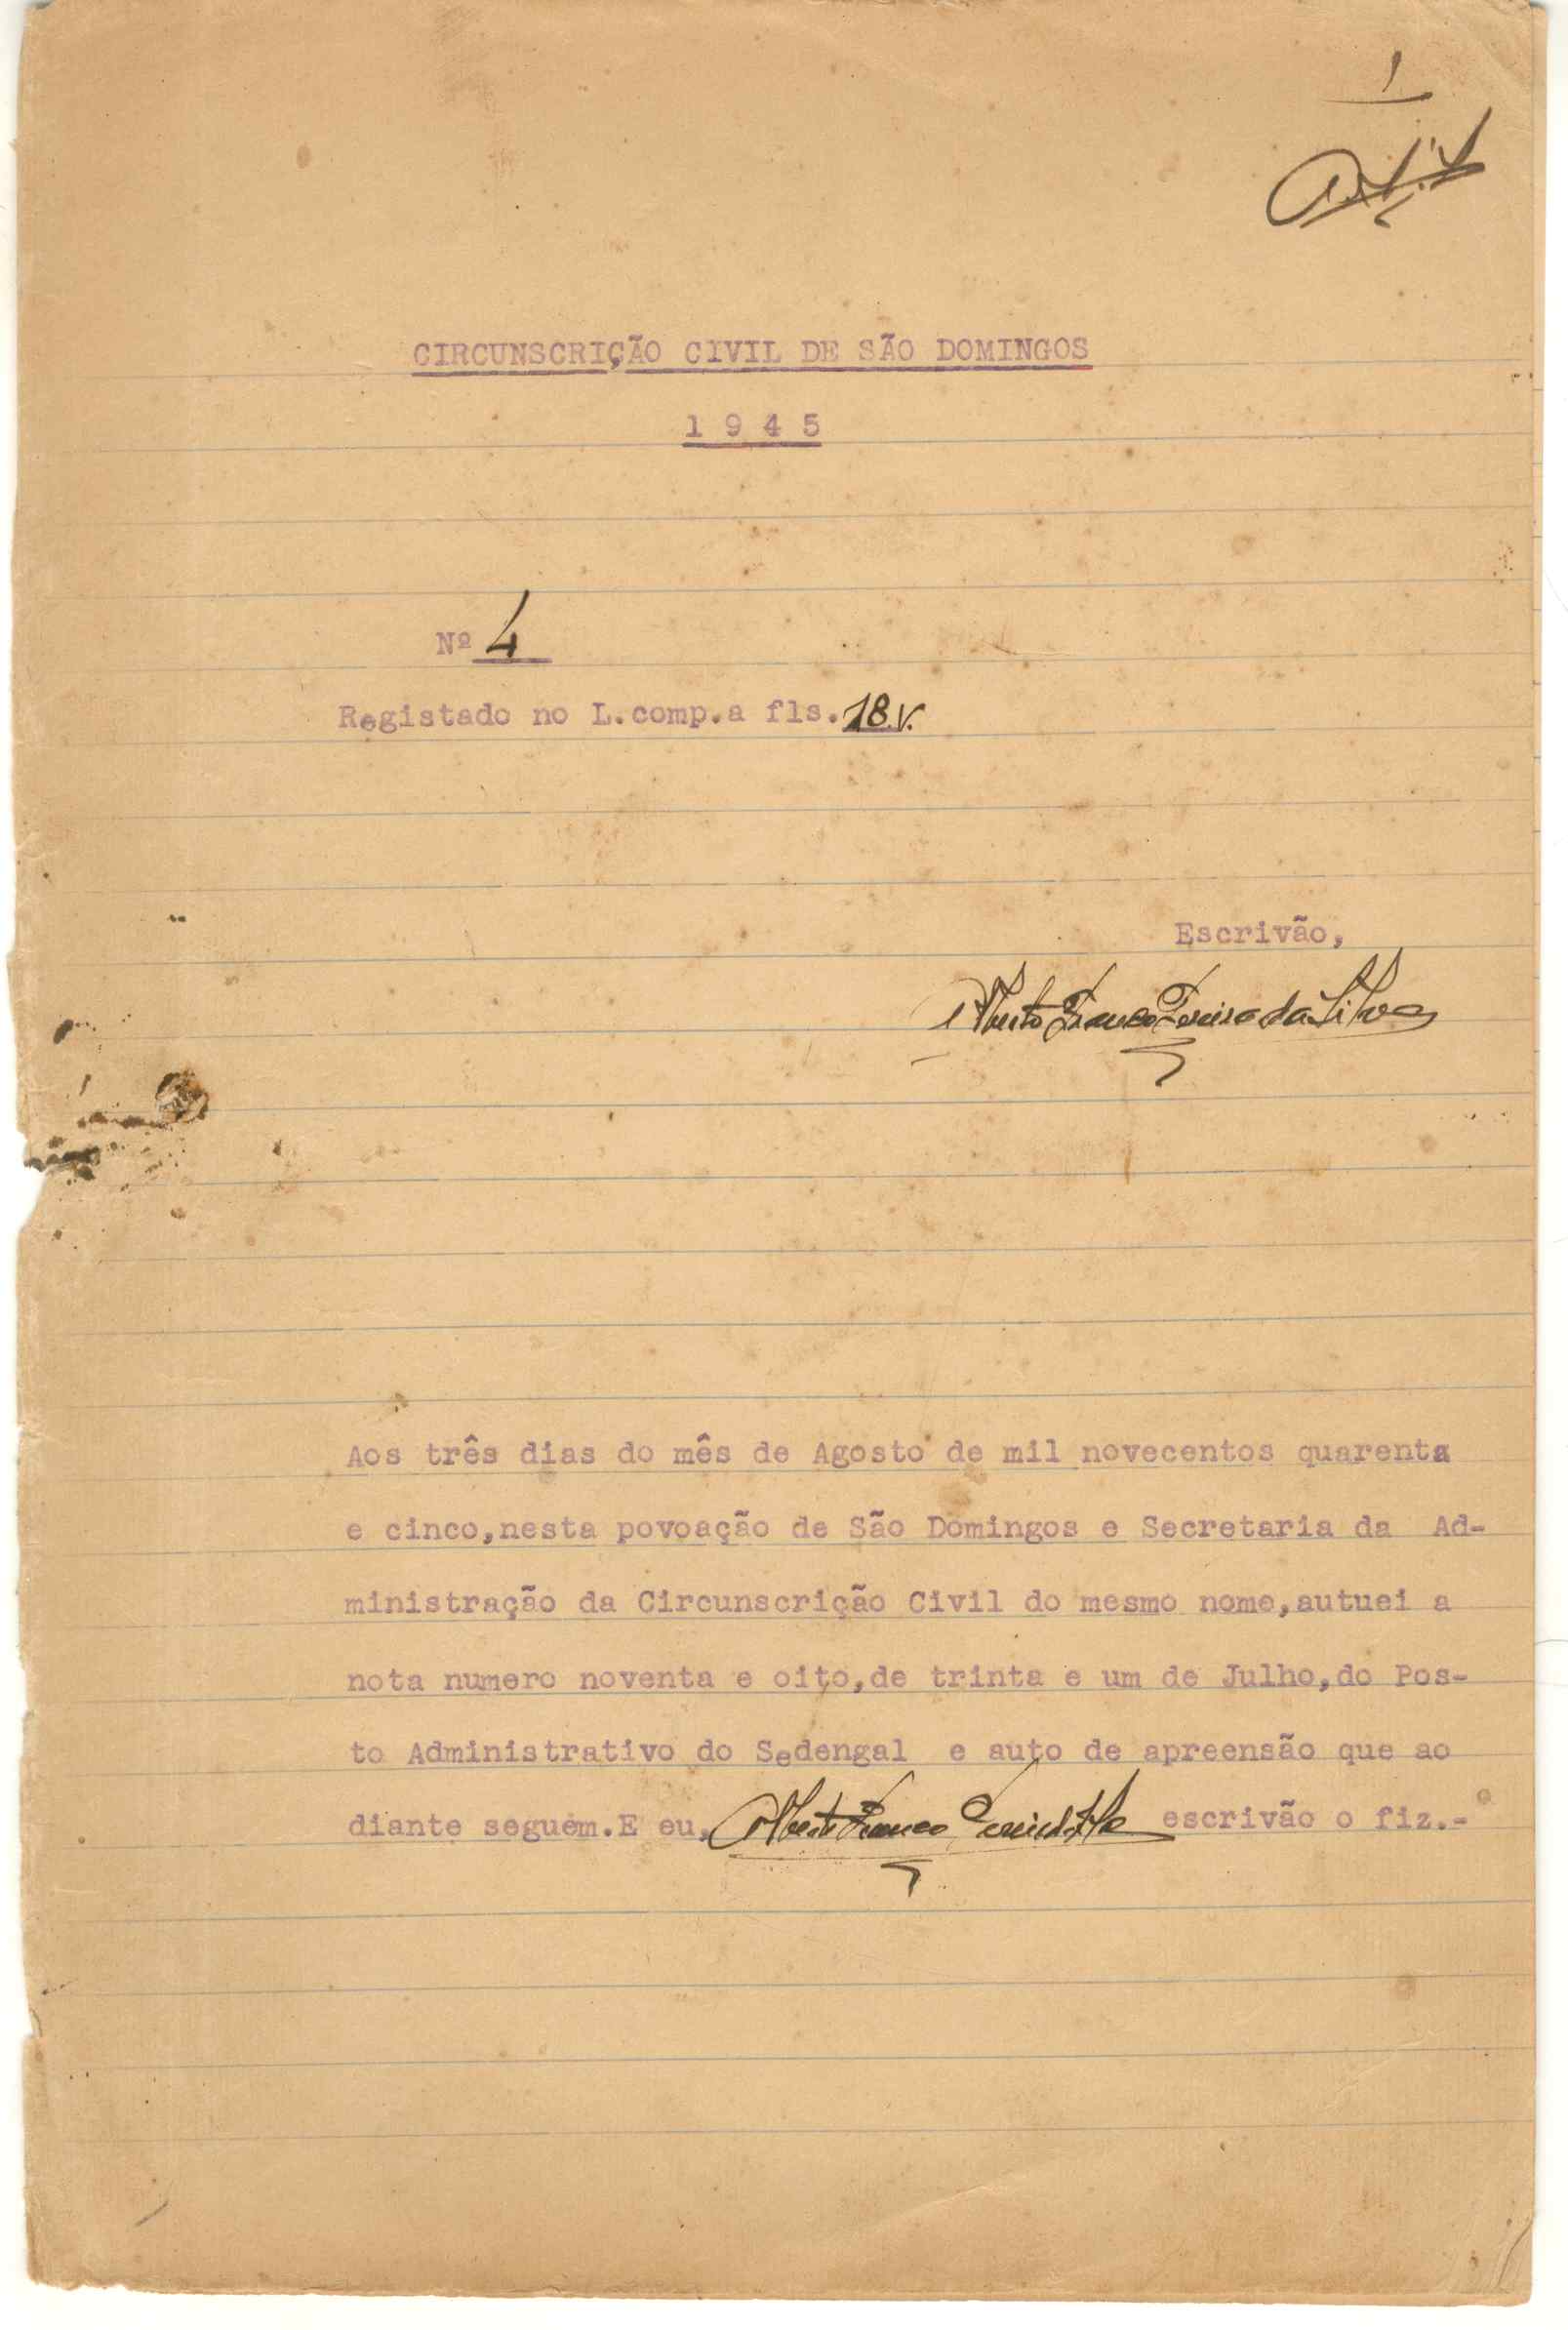 1
CIRCUNSCRIÇÃO CIVIL DE SÃO DOMINGOS
1 9 4 5
Nº 4
Registado no L.comp.a fls.18.v.
Escrivão,
Alberto Franco Pereira da Silva
Aos três dias do mês de Agosto de mil novecentos quarenta
e cinco,nesta povoação de São Domingos e Secretaria da Ad-
ministração da Circunscrição Civil do mesmo nome,autuei a
nota numero noventa e oito,de trinta e um de Julho,do Pos-
to Administrativo do Sedengal e auto de apreensão que ao
diante seguem.E eu, Alberto Franco Pereira da Silva escrivão o fiz.-